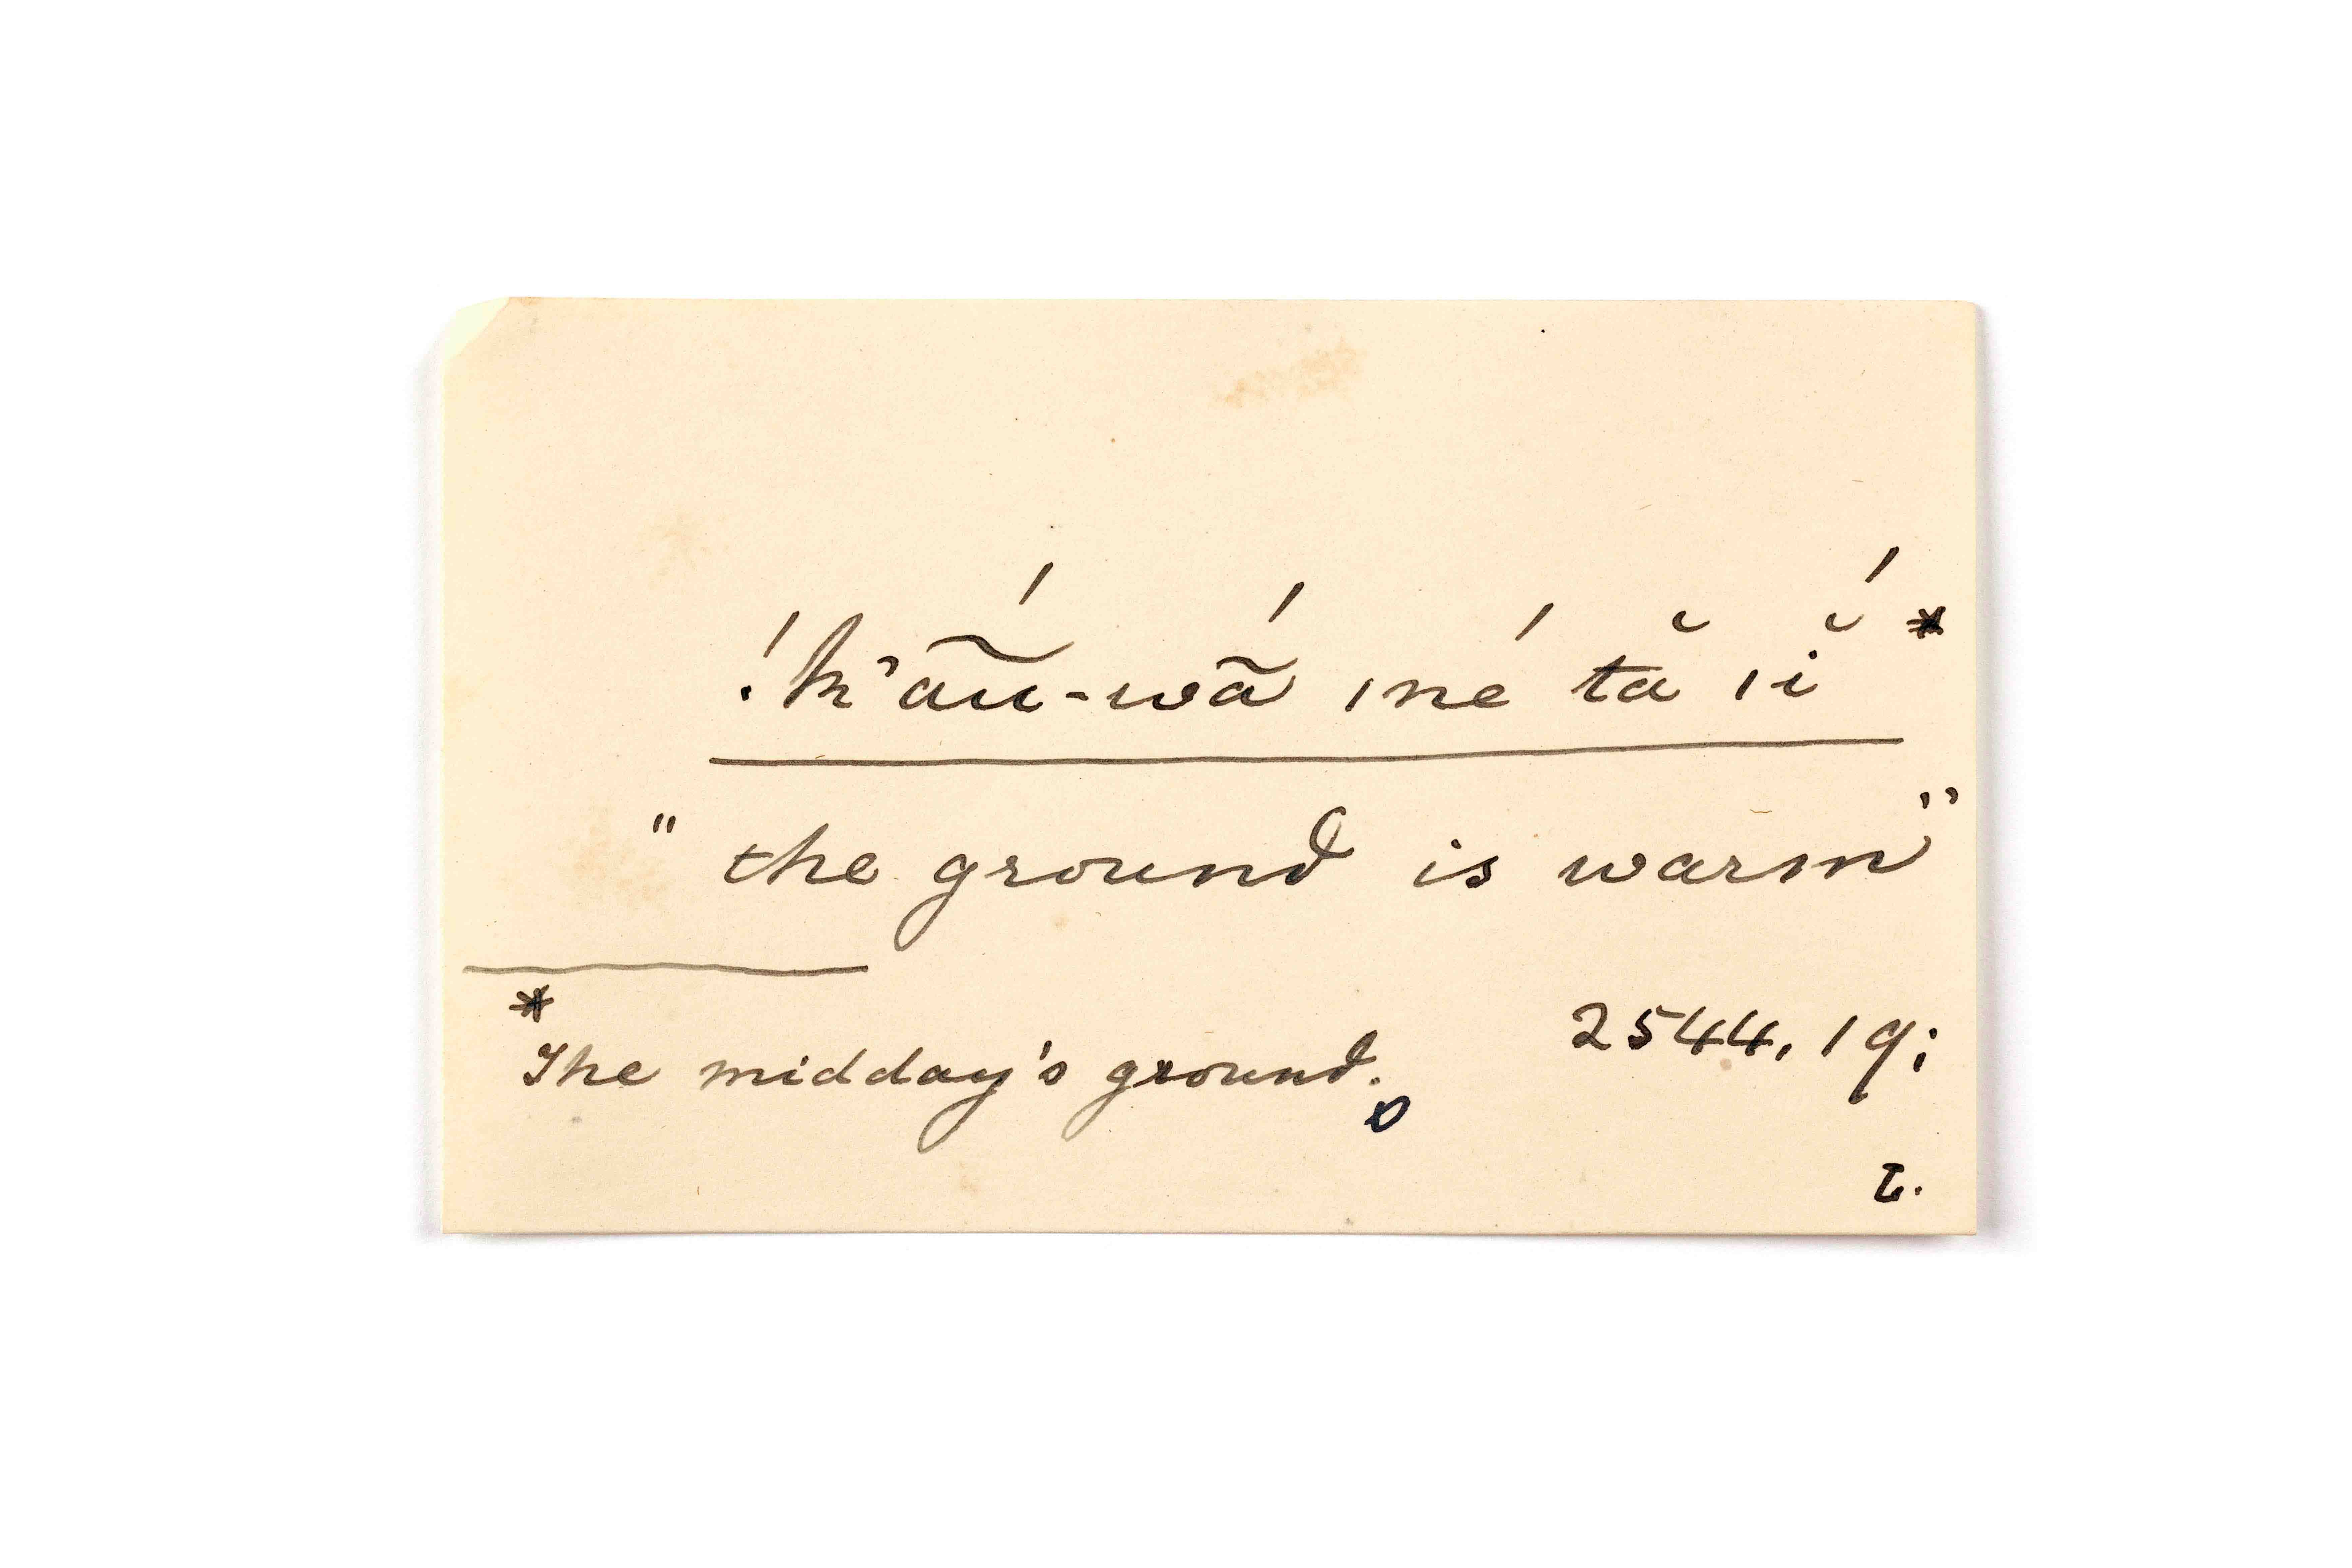 !k’ãú-wã́ ıné tă ıĭ́ *
" the ground is warm"
*
The midday's ground.
2544, 19;
L.